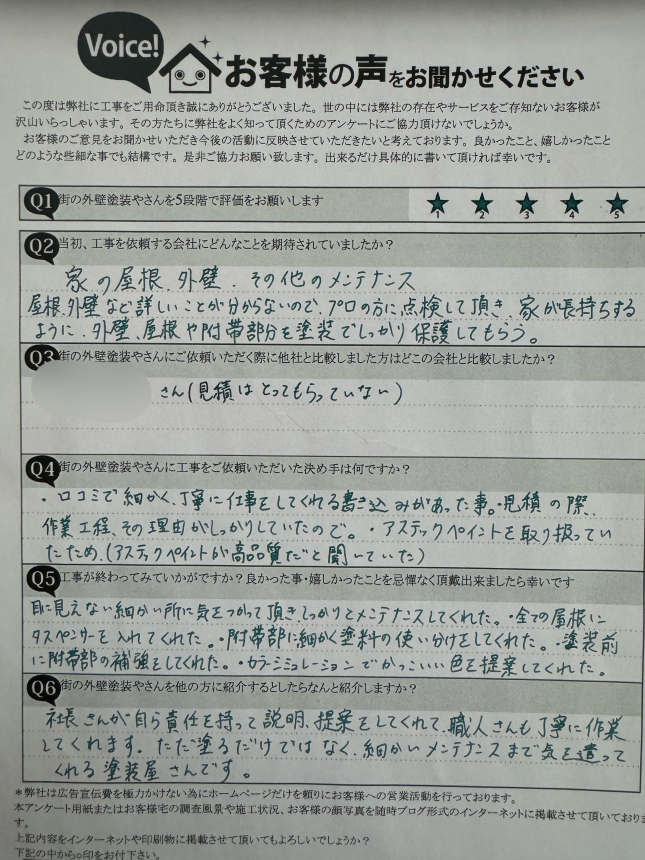 Voice!
お客様の声をお聞かせください
この度は弊社に工事をご用命頂き誠にありがとうございました。世の中には弊社の存在やサービスをご存知ないお客様が
沢山いらっしゃいます。その方たちに弊社をよく知って頂くためのアンケートにご協力頂けないでしょうか。
お客様のご意見をお聞かせいただき今後の活動に反映させていただきたいと考えております。良かったこと、嬉しかったこと
どのような些細な事でも結構です。是非ご協力お願い致します。出来るだけ具体的に書いて頂ければ幸いです。
Q1 街の外壁塗装やさんを5段階で評価をお願いします
★1 ★2 ★3 ★4 ★5
Q2 当初、工事を依頼する会社にどんなことを期待されていましたか?
家の屋根、外壁、その他のメンテナンス
屋根、外壁など詳しいことが分からないので、プロの方に点検して頂き、家が長持ちする
ように、外壁、屋根や附帯部分を塗装でしっかり保護してもらう。
Q3 街の外壁塗装やさんにご依頼いただく際に他社と比較しました方はどこの会社と比較しましたか?
さん(見積はとってもらっていない)
Q4 街の外壁塗装やさんに工事をご依頼いただいた決め手は何ですか?
・口コミで細かく、丁寧に仕事をしてくれる書き込みがあった事。・見積の際、
作業工程、その理由がしっかりしていたので。・アステックペイントを取り扱ってい
たため、(アステックペイントが高品質だと聞いていた)
Q5 工事が終わってみていかがですか?良かった事・嬉しかったことを忌憚なく頂戴出来ましたら幸いです
目に見えない細かい所に気をつかって頂きしっかりとメンテナンスしてくれた。・全ての屋根に
タスペンサーを入れてくれた。・附帯部に細かく塗料の使い分けをしてくれた。・塗装前
に附帯部の補強をしてくれた。・カラーシミュレーションでかっこいい色を提案してくれた。
Q6 街の外壁塗装やさんを他の方に紹介するとしたらなんと紹介しますか?
社長さんが自ら責任を持って説明、提案をしてくれて、職人さんも丁寧に作業
してくれます。ただ塗るだけではなく、細かいメンテナンスまで気を遣って
くれる塗装屋さんです。
*弊社は広告宣伝費を極力かけない為にホームページだけを頼りにお客様への営業活動を行っております。
本アンケート用紙またはお客様宅の調査風景や施工状況、お客様の顔写真を随時ブログ形式のインターネットに掲載させて頂いておりま
す。
上記内容をインターネットや印刷物に掲載させて頂いてもよろしいでしょうか?
下記の中から○印をお付下さい。